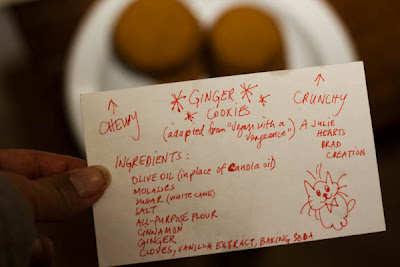 GINGER
COOKIES
CHEWY
CRUNCHY
(adapted from "Vegan with a
vengeance")
A JULIE
HEARTS
BRAD
CREATION
INGREDIENTS:
OLIVE OIL (in place of canola oil)
MOLASSES
SUGAR (WHITE CANE)
SALT
ALL-PURPOSE FLOUR
CINNAMON
GINGER
CLOVES, VANILLA EXTRACT, BAKING SODA